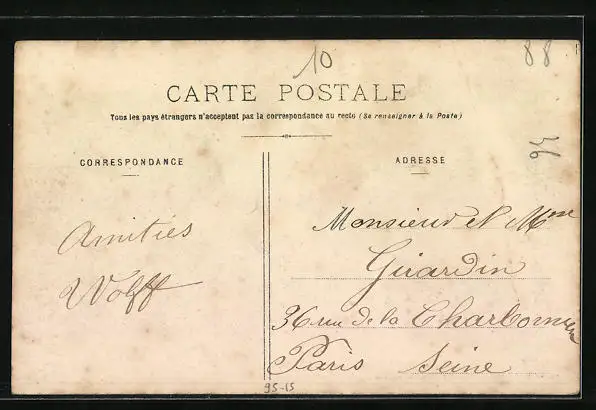 10
88
CARTE POSTALE
Tous les pays étrangers n'acceptent pas la correspondance au recto (Se renseigner à la Poste)
94
CORRESPONDANCE
ADRESSE
Amitiés
Wolff
Monsieur et Mme
Girardin
36 rue de la Charbonnière
Paris Seine
95-15